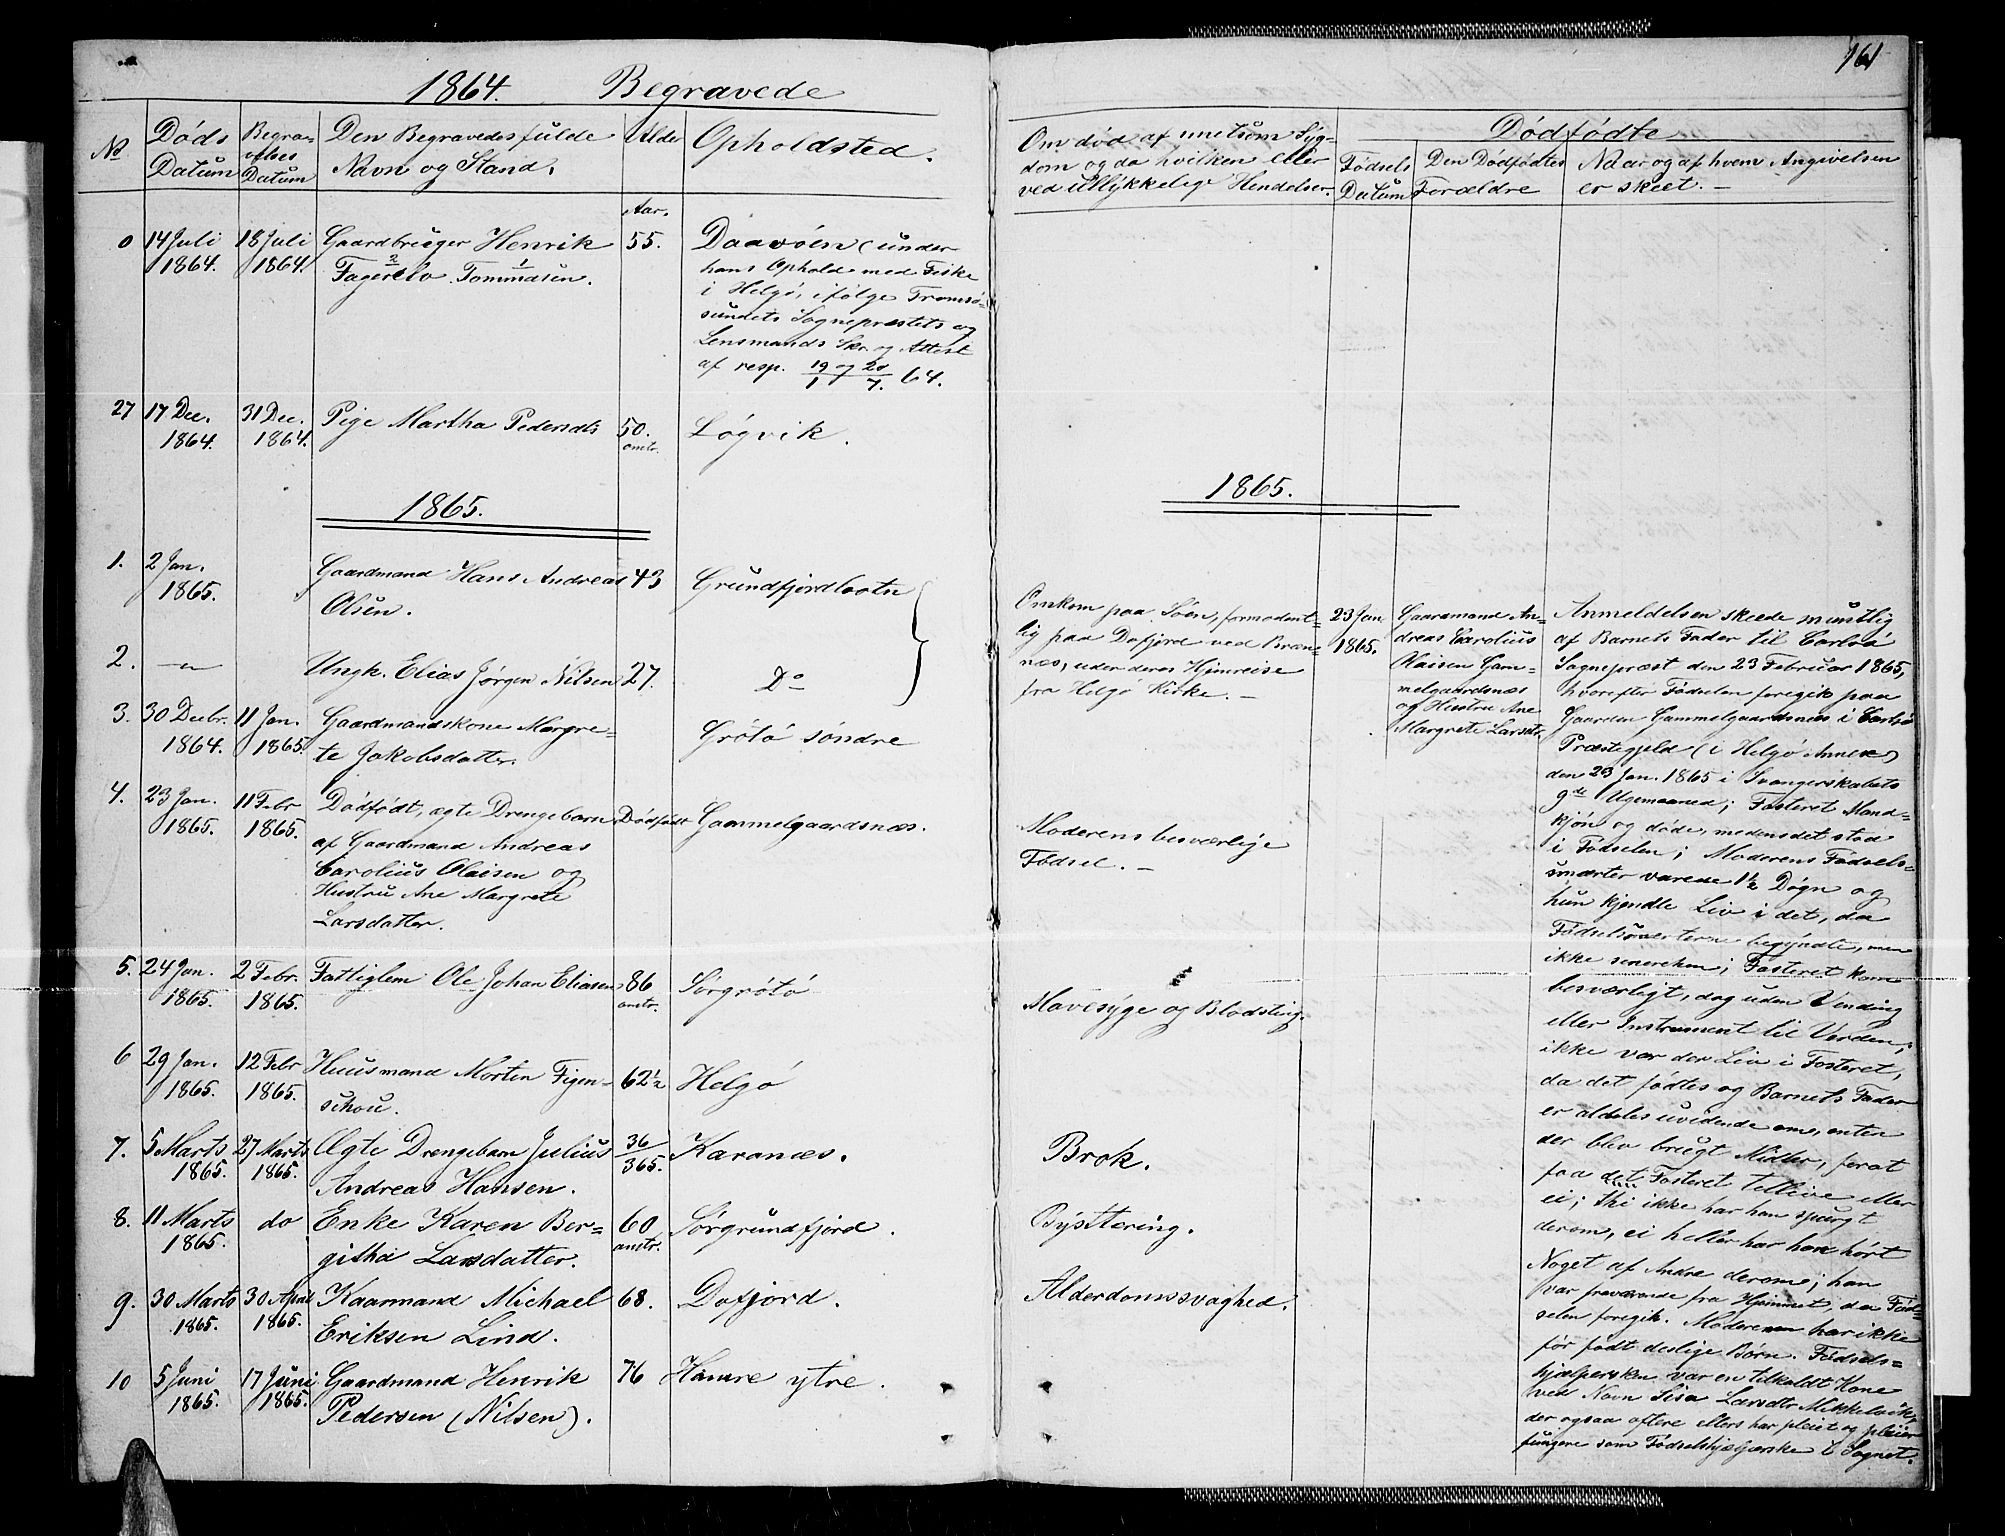 1864. Begravede
№
Døds
Datum
Begra-
velses
Datum
Den Begravedes fulde
Navn og Stand.
Alder
Opholdsted.
Aar.
0 14 Juli 18 Juli Gaardbruger Henrik 55. Daavöen (under
1864. 1864. Tommasen. hans Ophold med Fiske
i Helgö, ifølge Tromsø-
sundets Sognepræstets og
Lensmands Skr. og Attest
af resp. 19 og 20 64.
27 17 Dec. 31 Dec. Pige Martha Pedersdtr 50. Løgvik.
1864. 1864. omtr.
1865.
1. 2 Jan. Gaardmand Hans Andreas 43 Grundfjordbotn
1865. Olsen.
2. —"— Ungk. Elias Jørgen Nilsen 27. Do
3. 30 Decbr. 11 Jan. Gaardmandskone Margre- Grötö söndre
1864. 1865. te Jakobsdatter.
4. 23 Jan. 11 Febr Dödfödt, ægte Drengebarn Dödfödt Gammelgaardsnæs.
1865. 1865. af Gaardmand Andreas
Carolius Olaisen og
Hustru Ane Margrete
Larsdatter.
5. 24 Jan. 2 Febr. Fattiglem Ole Johan Eliasen 86 Sörgrötö
1865. 1865. omtr.
6 29 Jan. 12 Febr Huusmand Morten Figen- 62½ Helgö
1865. 1865. schou.
7. 5 Marts 27 Marts Ægte Drengebarn Julius 36/365. Karanæs.
1865. 1865. Andreas Hansen.
8. 11 Marts do Enke Karen Ber- 60 Sørgrundfjord.
1865. githa Larsdatter. omtr.
9. 30 Marts 30 April Kaarmand Michael 68. Dafjord.
1865. 1865. Eriksen Lind.
10 5 Juni 17 Juni Gaardmand Henrik 76 Hamre ytre.
1865. 1865. Pedersen (Nilsen).
161
Om död af smitsom Syg-
dom og da hvilken eller
ved ulykkelige Hendelser.
Dødfødte
Fødsels
Datum
Den Dødfødtes
Forældre
Naar og af hvem Angivelsen
er skeet. —
1865.
Omkom paa Søen, formodent-
lig paa Dafjord ved Bræn-
næs, under deres Hjemreise
fra Helgö Kirke. —
Moderens besværlige
Födsel. —
Mavesyge og Blodsting.
Brok.
Bysttæring.
Alderdomssvaghed.
23 Jan
1865.
Gaardmand An-
dreas Carolius
Olaisen Gam-
melgaardsnæs
og Hustru Ane
Margrete Larsdtr.
Anmeldelsen skeede mundtlig
af Barnets Fader til Carlsö
Sognepræst den 23 Februar 1865,
hvorefter Födselen foregik paa
Gaarden Gammelgaardsnæs i Carlsö
Præstegjeld (i Helgö Annex)
den 23 Jan. 1865 i Svangerskabets
9de Ugemaaned; Fosteret Mand-
kjön og döde, medens det stod
i Födselen; Moderens Födsels-
smerter varede 1½ Døgn og
hun kjendte Liv i det, da
Födselsmerterne begyndte, men
ikke senere hen; Fosteret kom
besværligt, dog uden Vending
eller Instrument til Verden;
ikke var der Liv i Fosteret,
da det fødtes og Barnets Fader
er aldeles uvidende om, enten
der blev brugt Midler, for at
faa det Fosteret tillive eller
ei; thi ikke har han spurgt
derom, ei heller har han hört
Noget af Andre derom; han
var fraværende fra Hjemmet, da Föd-
selen foregik. Moderen har ikke
før født deslige Børn. Fødsels-
hjælpersken var en tilkaldt Kone
ved Navn Sisa Larsdtr Mikkelvik,
der ogsaa oftere ellers har pleiet og pleier
fungere som Fødselshjelperske i Sognet.